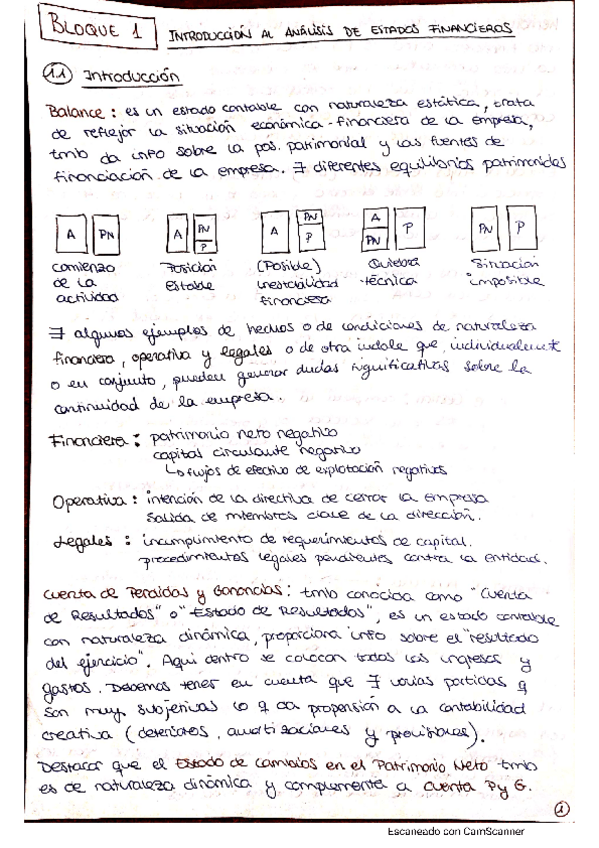 BLOQUE 1 INTRODUCCIÓN AL ANÁLISIS DE ESTADOS FINANCIEROS
1.1 Introducción
Balance : es un estado contable con naturaleza estática, trata
de reflejar la situación económica-financiera de la empresa,
tmb da info sobre la pos. patrimonial y las fuentes de
financiación de la empresa. ∃ diferentes equilibrios patrimoniales
A PN A PN P A PN P A PN P PN P
comienzo de la actividad
Posición estable
(Posible) inestabilidad financiera
Quiebra técnica
Situación imposible
∃ algunos ejemplos de hechos o de condiciones de naturaleza
financiera, operativa y legales o de otra índole que, individualmente
o en conjunto, pueden generar dudas significativas sobre la
continuidad de la empresa.
Financiera : patrimonio neto negativo
capital circulante negativo
↳ flujos de efectivo de explotación negativos
Operativa : intención de la directiva de cerrar la empresa
salida de miembros clave de la dirección.
Legales : incumplimiento de requerimientos de capital.
procedimientos legales pendientes contra la entidad.
Cuenta de Perdidas y Ganancias : tmb conocida como "Cuenta
de Resultados" o "Estado de Resultados", es un estado contable
con naturaleza dinámica, proporciona info sobre el "resultado
del ejercicio". Aqui dentro se colocan todos los ingresos y
gastos. Debemos tener en cuenta que ∃ varias partidas q
son muy subjetivas lo q da propensión a la contabilidad
creativa (deterioros, amortizaciones y provisiones).
Destacar que el Estado de Cambios en el Patrimonio Neto tmb
es de naturaleza dinámica y complementa a Cuenta PyG.
1
Escaneado con CamScanner